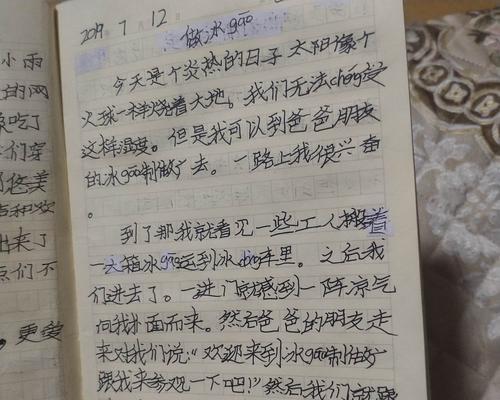 小雨
的网
吃了
们穿
悠美
和欢
出来了
点们不
，更爱
2019 7 12
做冰gao
今天是个炎热的日子太阳像个
火球一样烧着大地。我们无法cheng受
这样温度。但是我可以到爸爸朋友
的冰gao制做厂去。一路上我很兴奋
。
到了那我就看见一些工人搬着
一大箱冰gao运到冰ding车里。之后我
们进去了。一进门就感到一阵凉气
向我扑面而来。然后爸爸的朋友走
来对我们说:“欢迎来到冰gao制做厂
跟我来参观一下吧!”然后我们就跟